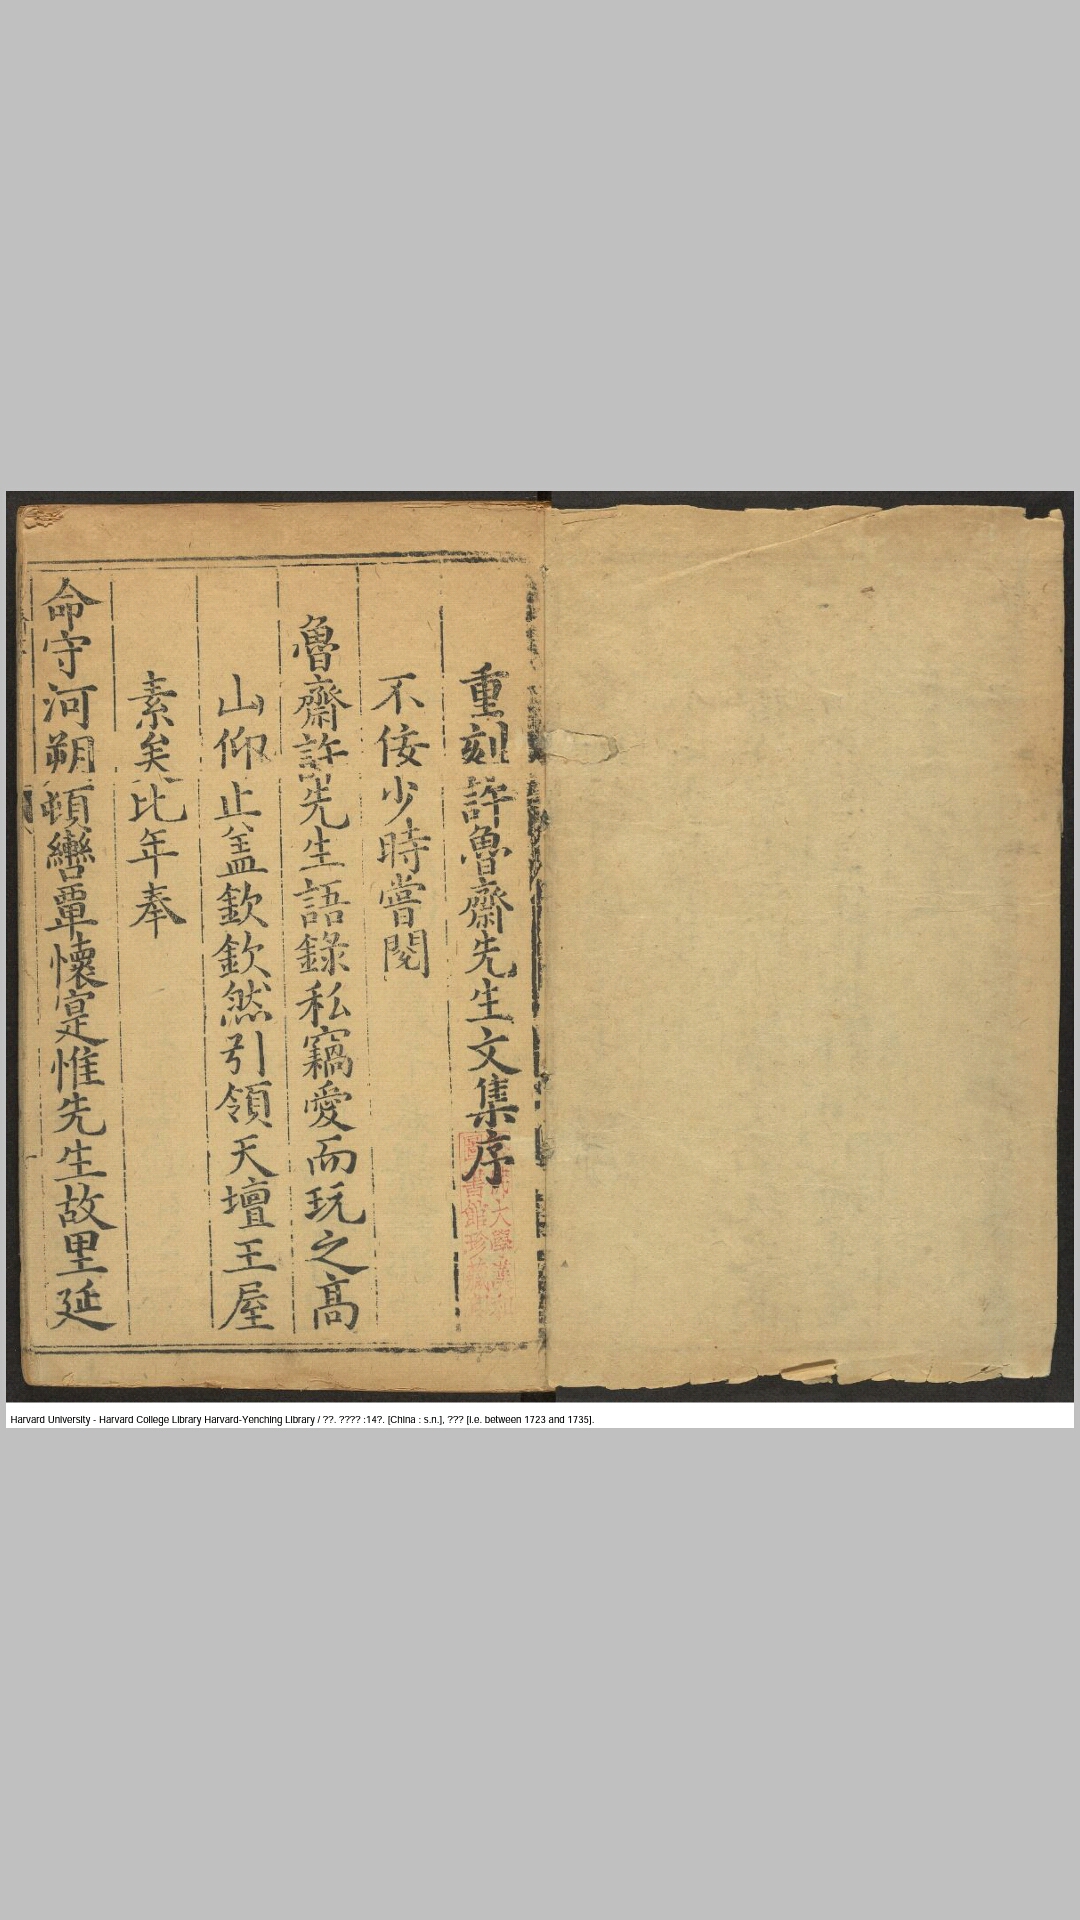 重刻許魯齋先生文集序
不佞少時嘗閱
魯齋許先生語錄私竊愛而玩之高
山仰止盖欽欽然引領天壇王屋
素矣比年奉
命守河朔頓轡覃懷寔惟先生故里延
大學漢和
圖書館珍藏印
Harvard University - Harvard College Library Harvard-Yenching Library / ??. ???? :14?. [China : s.n.], ??? [i.e. between 1723 and 1735].